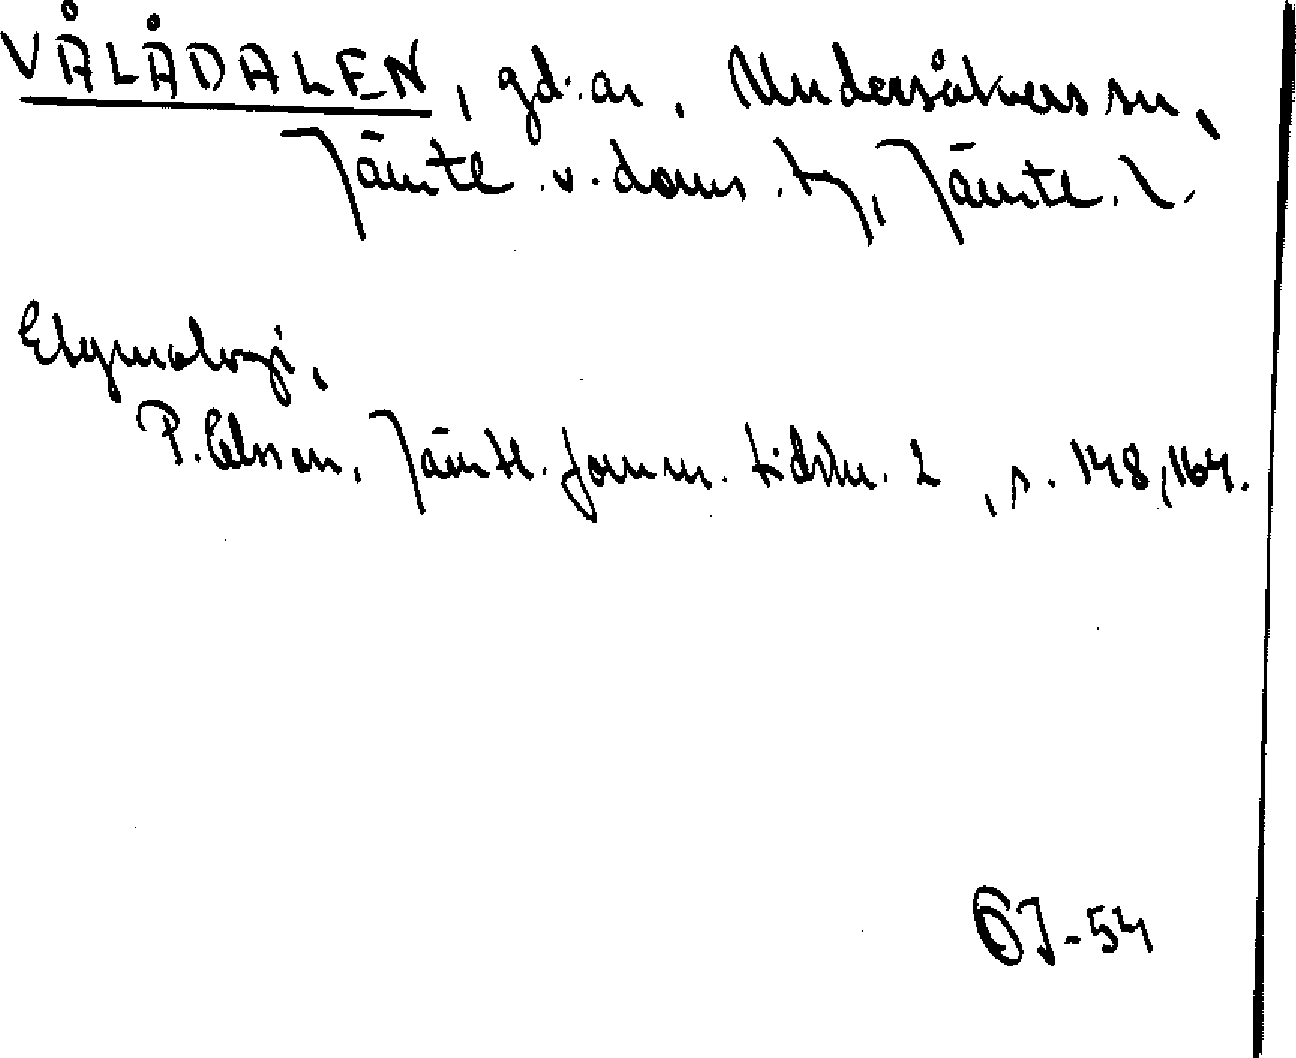 VÅLÅDALEN, gd.ar, Undersåkers sn,
Jämtl. v. doms. tj, Jämtl. l.
Etymologi.
P. Olsson, Jämtl. fornm. tidskr. 2, s. 148, 164.
-54